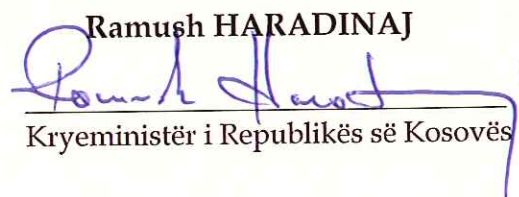 Ramush HARADINAJ
Kryeministër i Republikës së Kosovës